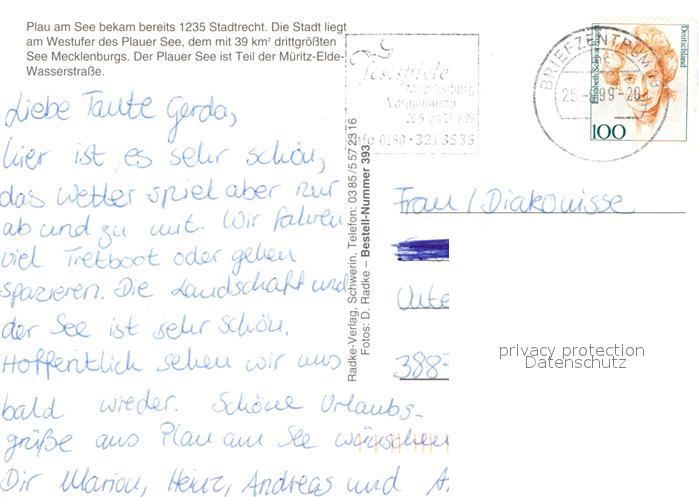 Plau am See bekam bereits 1235 Stadtrecht. Die Stadt liegt
am Westufer des Plauer See, dem mit 39 km² drittgrößten
See Mecklenburgs. Der Plauer See ist Teil der Müritz-Elde-
Wasserstraße.
Liebe Tante Gerda,
hier ist es sehr schön,
das Wetter spiel aber nur
ab und zu mit. Wir fahren
viel Tretboot oder gehen
spazieren. Die Landschaft und
der See ist sehr schön.
Hoffentlich sehen wir uns
bald wieder. Schöne Urlaubs-
grüße aus Plau am See wünschen
Dir Marion, Heinz, Andreas und A
Radke-Verlag, Schwerin, Telefon: 0385/5572816
Fotos: D. Radke – Bestell-Nummer 393
Festspiele
Mecklenburg
Vorpommern
Info 0180 - 321 3535
BRIEFZENTRUM
Deutschland
100
Frau / Diakonisse
Unte
388
privacy protection
Datenschutz